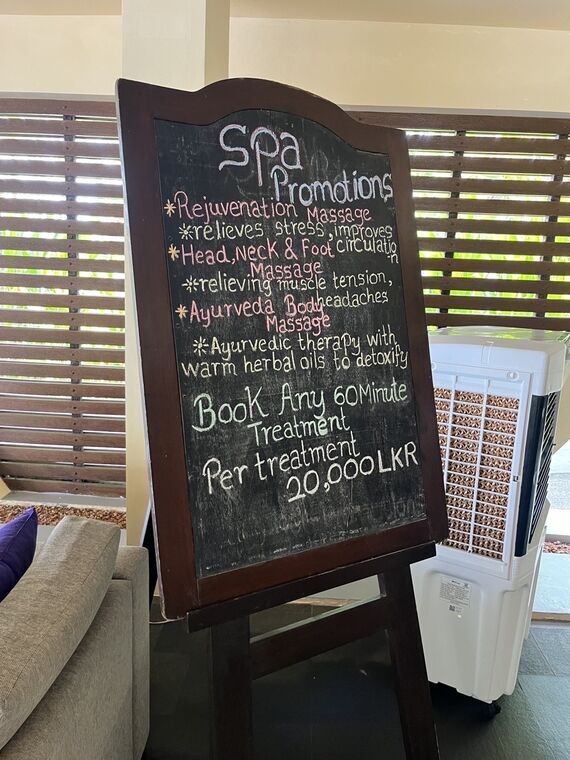 Spa
Promotions
*Rejuvenation Massage
*relieves stress, improves
circulation
*Head, Neck & Foot
Massage
*relieving muscle tension,
headaches
*Ayurveda Body
Massage
*Ayurvedic therapy with
warm herbal oils to detoxify
Book Any 60 Minute
Treatment
Per treatment
20,000 LKR